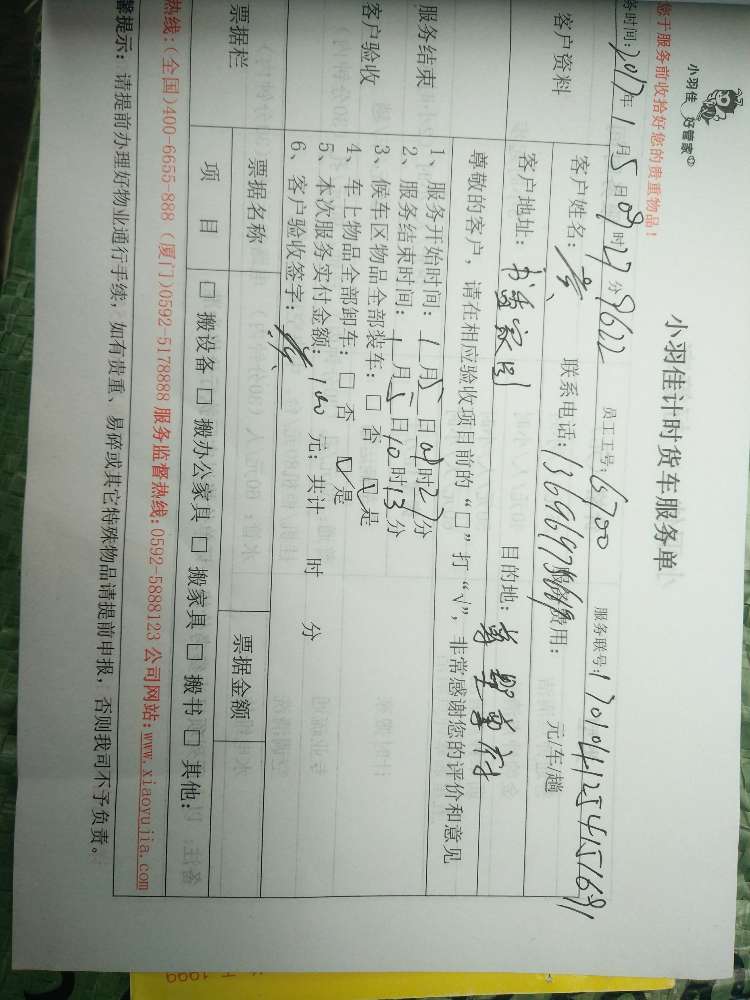 小羽佳 好管家
小羽佳计时货车服务单
您于服务前收拾好您的贵重物品！
务时间：2017年1月5日09时27分 员工工号：G700 服务联号：
客户资料
客户姓名： 联系电话：13696973669 服务费用： 元/车/趟
客户地址： 目的地：
尊敬的客户，请在相应验收项目前的“口”打“√”，非常感谢您的评价和意见
服务结束
客户验收
1、服务开始时间：1月5日09时27分
2、服务结束时间：1月5日10时13分
3、候车区物品全部装车：□否 ☑是
4、车上物品全部卸车：□否 ☑是
5、本次服务实付金额：100元；共计 时 分
6、客户验收签字：
票据栏
票据名称 票据金额
项 目 □搬设备 □搬办公家具 □搬家具 □搬书 □其他：
热线：(全国)400-6655-888（厦门)0592-5178888 服务监督热线:0592-5888123 公司网站:www.xiaoyujia.com
馨提示：请提前办理好物业通行手续；如有贵重、易碎或其它特殊物品请提前申报，否则我司不予负责。
1999